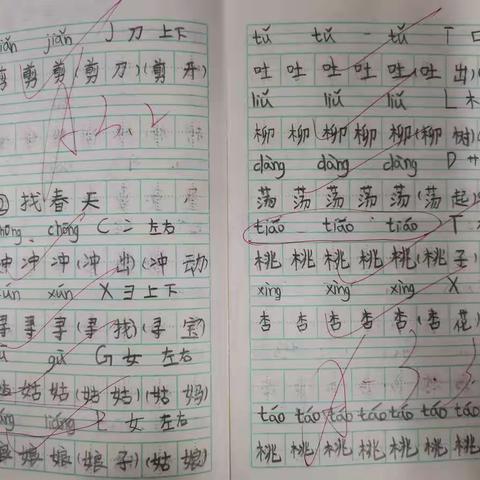 jiǎn 丿 刀 上下
剪 剪 剪 (剪 刀) (剪 开)
② 找 春 天
chōng chōng C 二 左右
冲 冲 冲 (冲 出) (冲 动)
xún xún X 彐 上下
寻 寻 寻 (寻 找) (寻 宝)
gū gū G 女 左右
姑 姑 姑 (姑 姑) (姑 妈)
liáng 女 左右
娘 娘 娘 (娘 子) (姑 娘)
tǔ tǔ tǔ T 口
吐 吐 吐 吐 (吐 出) (
liǔ liǔ liǔ L 木
柳 柳 柳 柳 (柳 树) (
dàng dàng dàng D 艹
荡 荡 荡 荡 (荡 起)
tiāo tiāo tiáo T
桃 桃 桃 桃 (桃 子) (
xìng xìng xìng X
杏 杏 杏 杏 (杏 花)
táo táo táo táo táo táo
桃 桃 桃 桃 桃 桃 桃